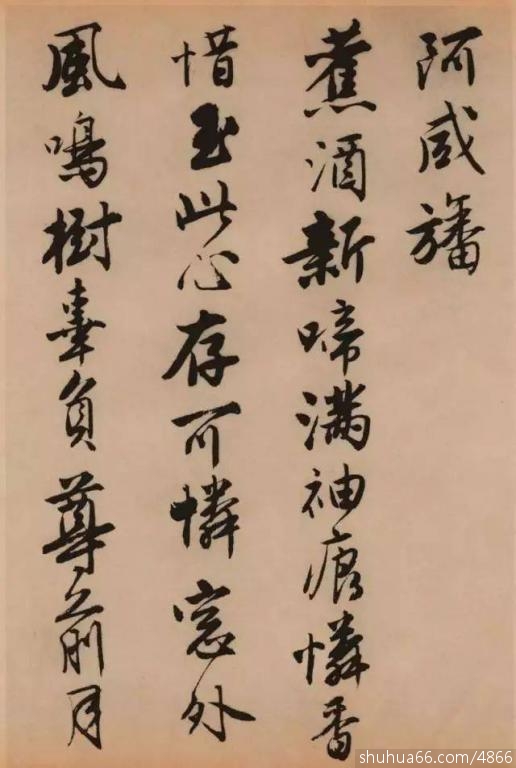 阿咸旛
舊酒新啼滿袖痕憐香
惜玉此心存可憐窓外
風鳴樹辜負尊前月
shuhua66.com/4866